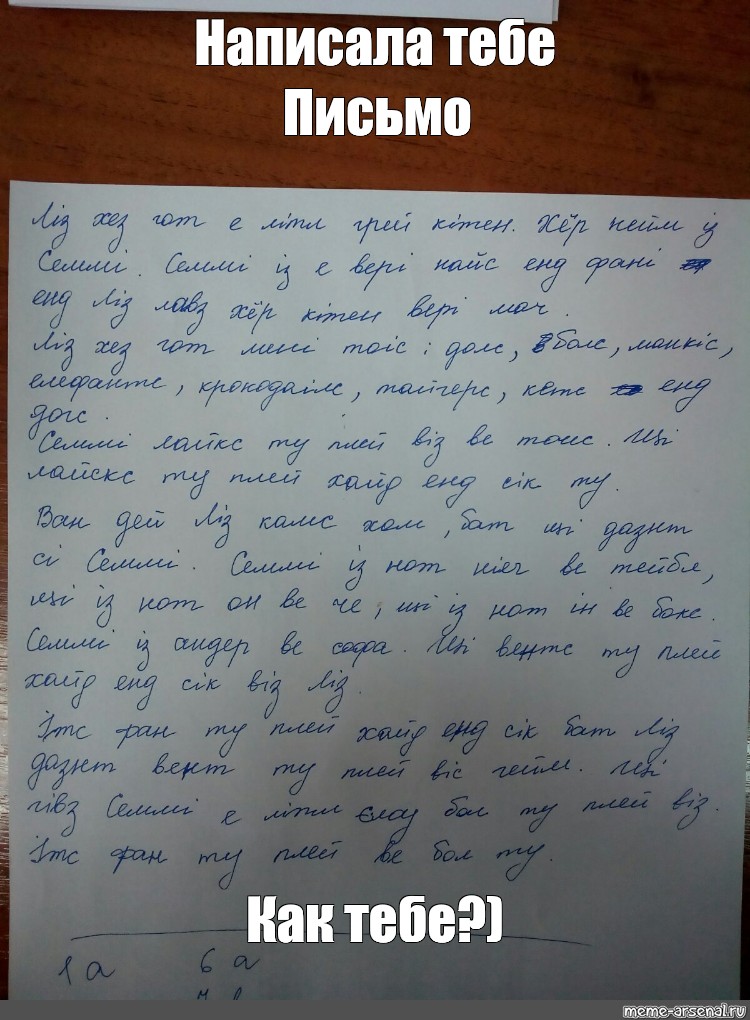 Написала тебе
Письмо
Ліз хез гот е літл грей кітен. Хёр нейм із
Семмі. Семмі із е вері найс енд фані
енд Ліз лавз хёр кітен вері мач.
Ліз хез гот мені тоіс: долс, болс, манкіс,
елефантс, крокодаілс, тайгерс, кетс енд
догс.
Семмі лайкс ту плей віз ве тоис. Щі
лайскс ту плей хайд енд сік ту.
Ван дей Ліз камс хом, бат щі дазнт
сі Семмі. Семмі із нот ніер ве тейбл,
щі із нот он ве че, щі із нот ін ве бокс.
Семмі із андер ве софа. Щі вентс ту плей
хайд енд сік віз Ліз.
Ітс фан ту плей хайд енд сік бат Ліз
дазнт вент ту плей віс гейм. Щі
гівз Семмі е літл єлоу бол ту плей віз.
Ітс фан ту плей ве бол ту.
Как тебе?)
1 а 6 а
meme-arsenal.ru